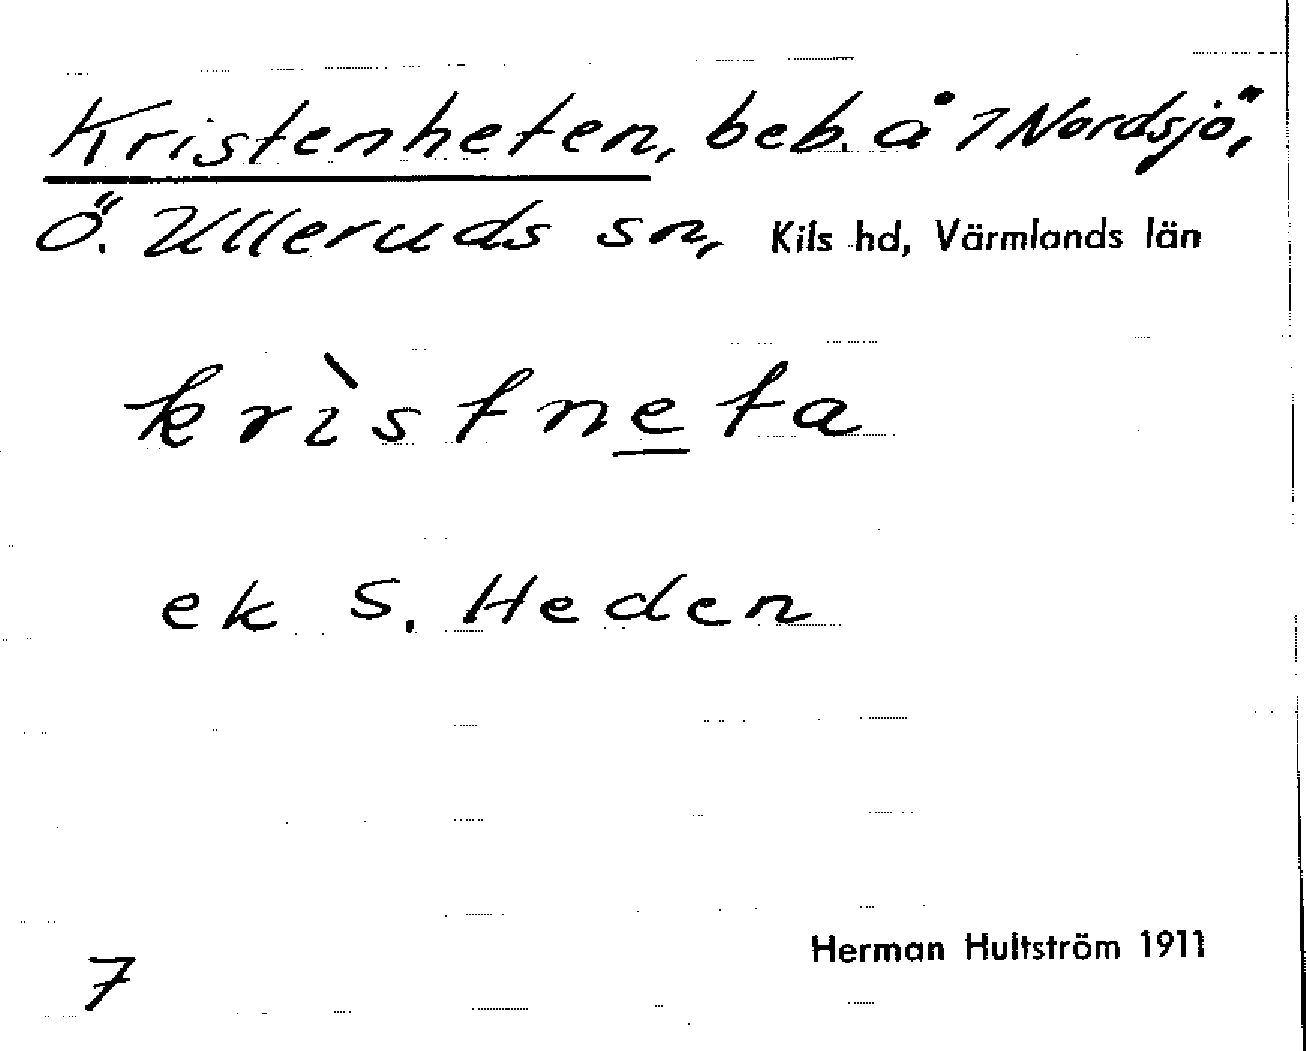 Kristenheten, beb. å 7 Nordsjö,
Ö. Ulleruds sn, Kils hd, Värmlands län
krìstneta
ek S. Heden
Herman Hultström 1911
7